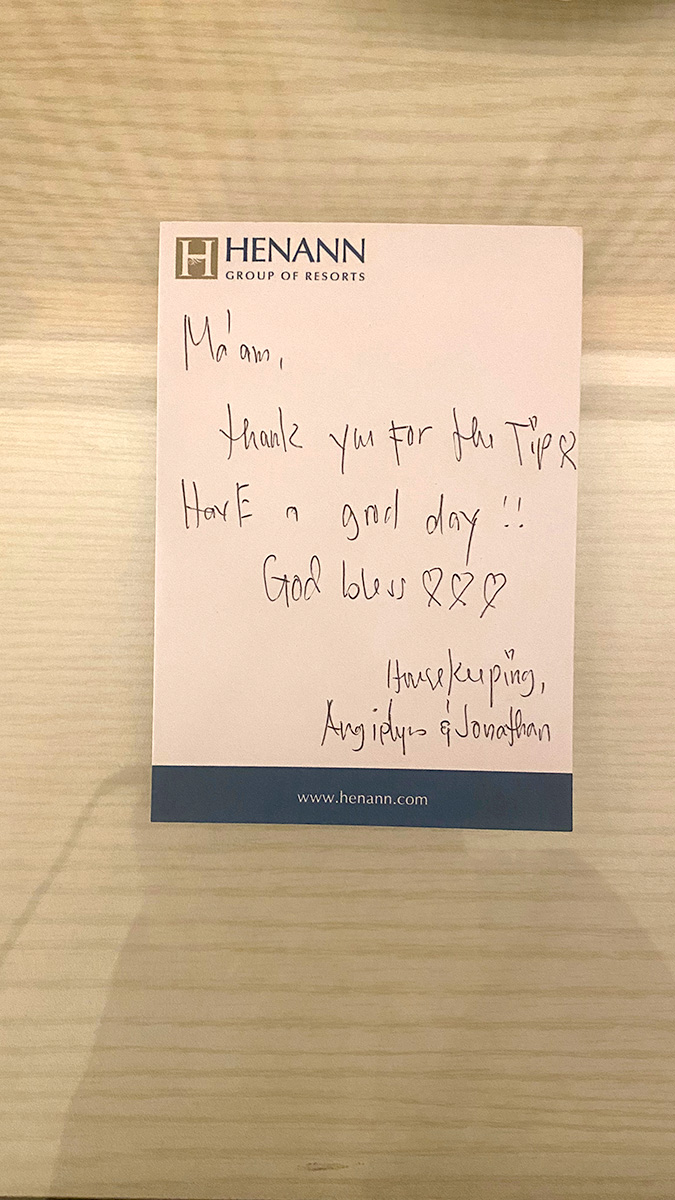 H HENANN
GROUP OF RESORTS
Ma'am,
thank you For the Tip ♡
HavE a good day !!
God bless ♡♡♡
Housekeeping,
& Jonathan
www.henann.com